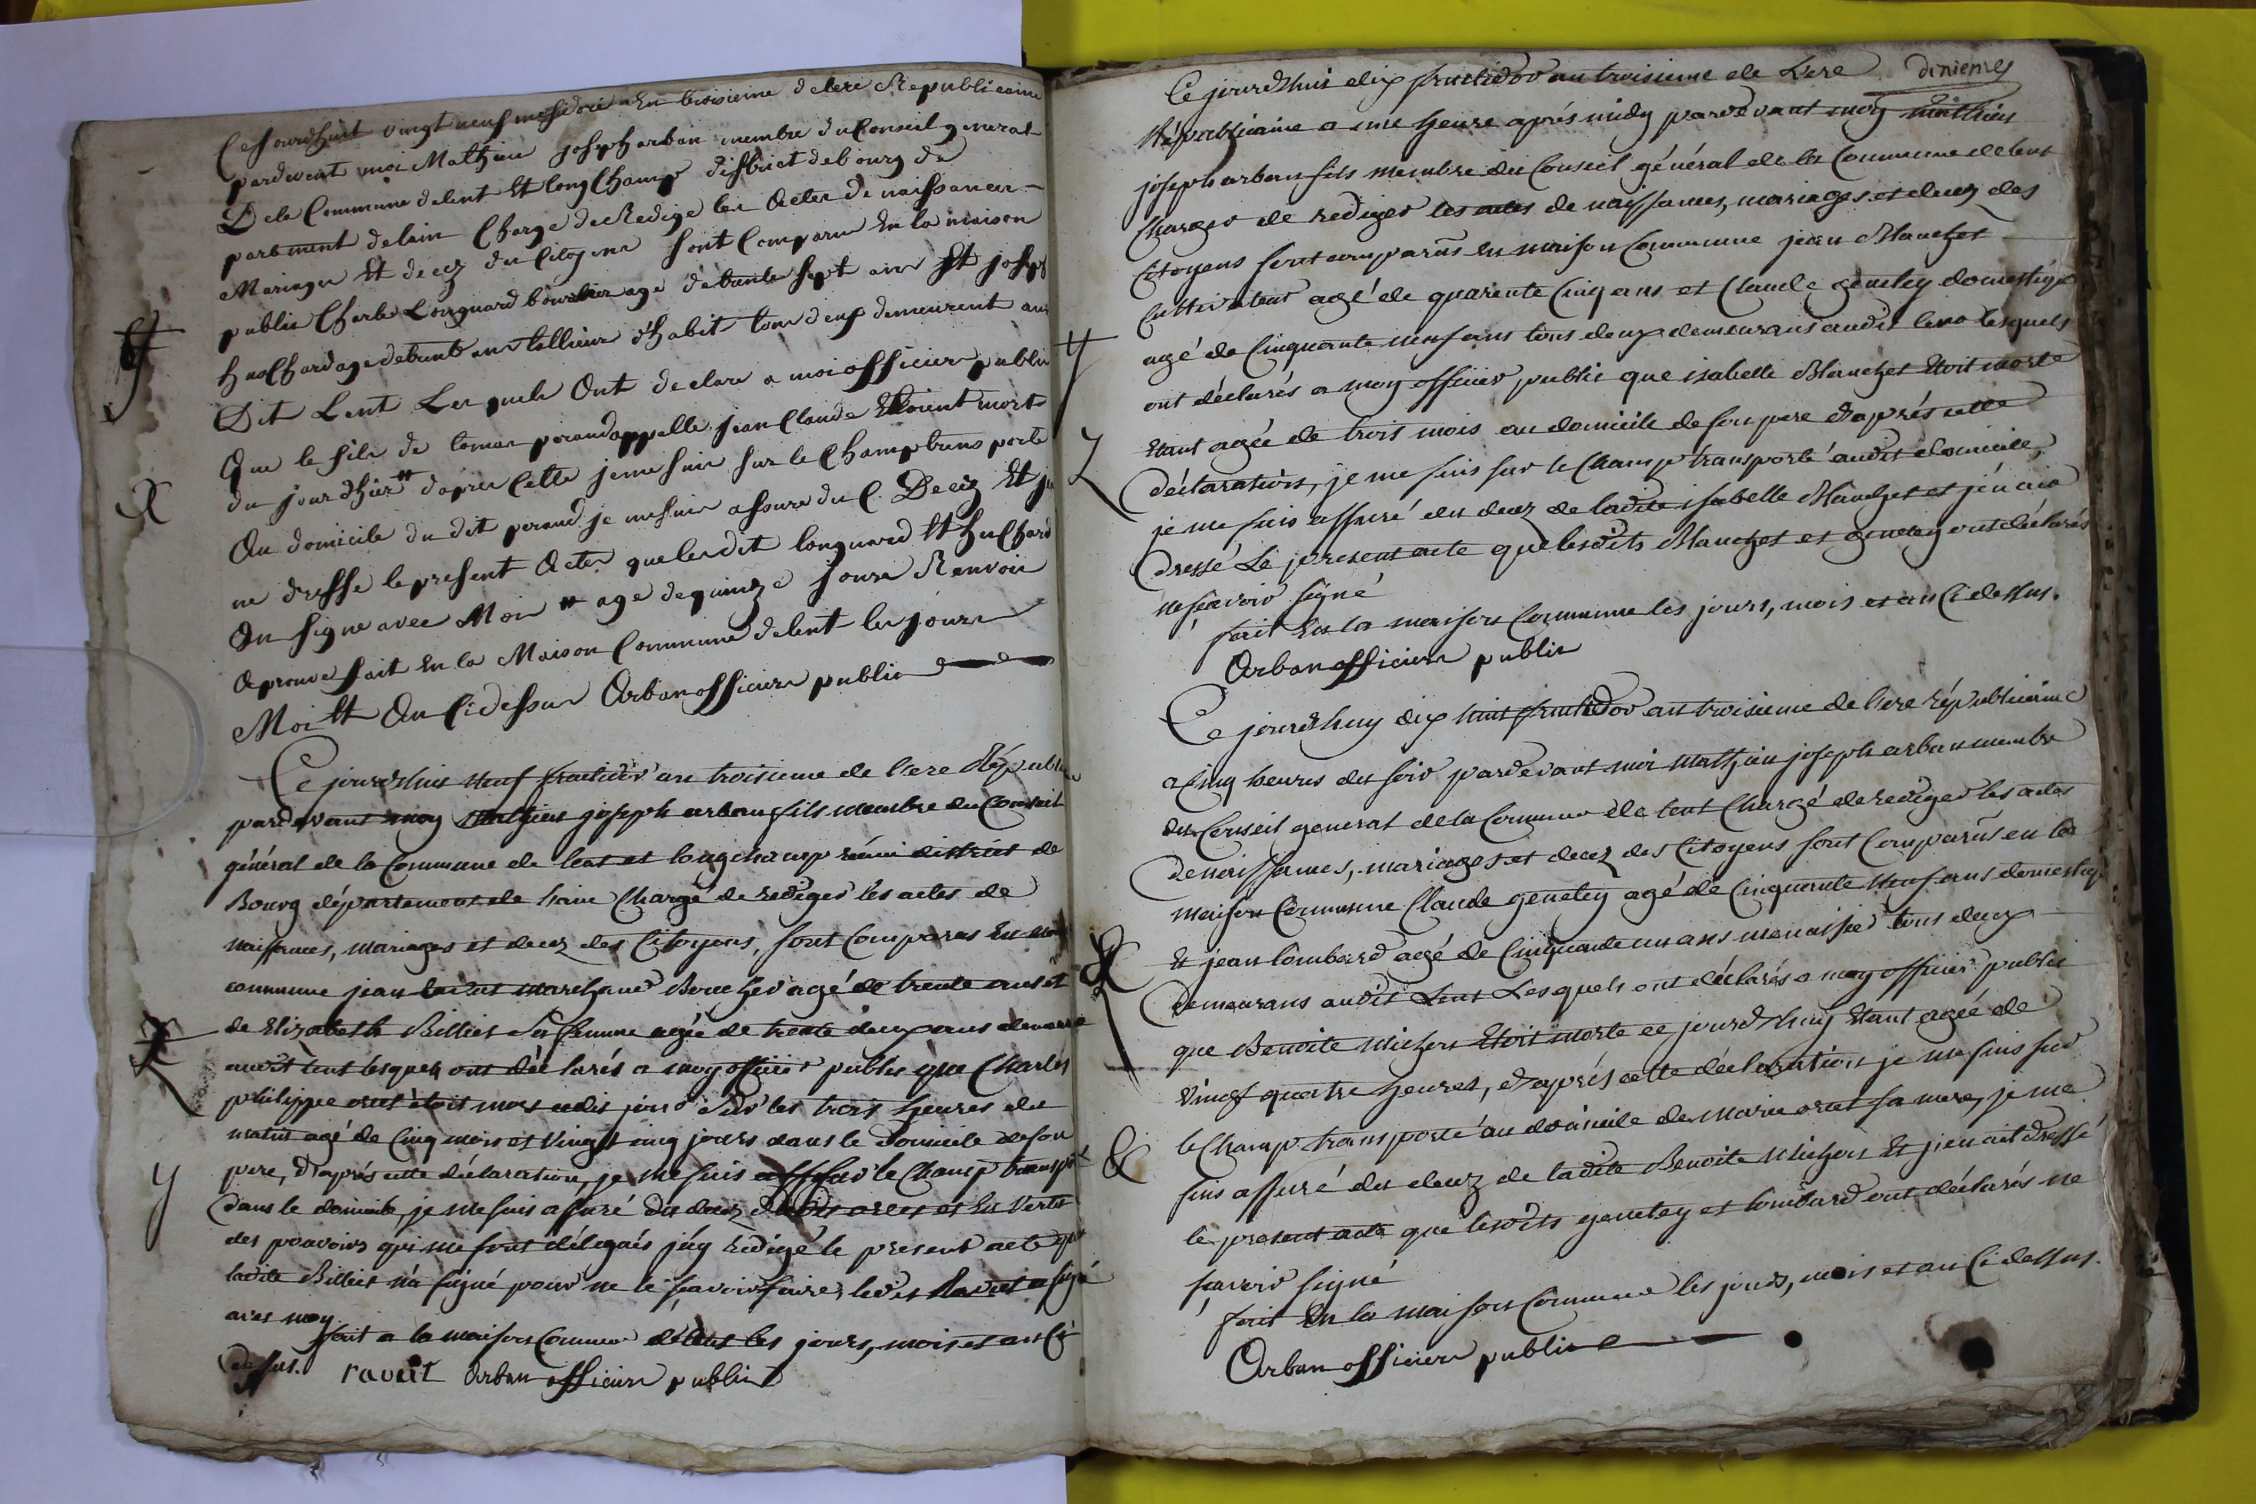 Cejourdhuit vingt neuf messidore en troisieme de lere Republicaine
pardevant moi Mathieu joseph arban membre du Conseil general
De la Commune de lent Et long Champ district de bourg de
partement de lain Charge de Redige les Actes de naissances
Mariages Et decez des Citoyens sont Comparu En la maison
public Charle Longuard age de trente sept ans Et joseph
huChard age de trente ans tallieur d'habit tous deux demeurent au
Dit Lent Lesquels Ont declare a moi officier public
Que le fils de appelle jean Claude Etoient morts
du jourdhier dapres Cette je me suis sur le Champ transporte
Au domicile du dit perand je me suis assure du C. Decez Et j
ne dresse le present Acte que les dit longuard Et huChard
On signe avec Moi age de quinze jours Renvoie
Aprouve fait En la Maison Commune de lent les jours
Moi Et An Ci dessus Arban officier public
Ce jourdhui neuf fructidor an troisieme de l'ere Républ
pardevant moy Mathieu joseph arban fils membre du Conseil
général de la Commune de lent et longchamp réuni district de
Bourg département de lain Chargé de rediger les actes de
naissances, mariages et decez des Citoyens, sont Comparus En
commune jean marchand Boucher agé de trente ans et
de Elizabeth Billiet sa femme agée de trente deux ans
audit lent lesquels ont déclarés a moy officier public que Charles
philippe étoit mort audit jour les trois heures du
matin agé de Cinq mois et vingt cinq jours dans le domicile de son
pere, d'après cette déclaration, je me suis le Champ transp
dans le domicile, je me suis assuré du decez et En vertu
des pouvoirs qui me sont délegués j'ay redigé le present acte que
ladite Billiet n'a signé pour ne le sçavoir faire, ledit a signé
avec moy
fait a la maison Commune de lent les jours, mois et an Ci
dessus. ravett Arban officier public
dixieme
Ce jourdhui dix fructidor an troisieme de L'ere
Républicaine a une heure après midy pardevant moy Mathieu
joseph arban fils membre du Conseil général de la Commune de lent
Charger de rediger les actes de naissances, mariages et decez des
Citoyens sont comparûs en maison Commune jean Blanchet
Cultivateur agé de quarente Cinq ans et Claude genetey domestique
agé de Cinquante neuf ans tous deux demeurans audit lent lesquels
ont déclarés a moy officier public que isabelle Blanchet Etoit morte
Etant agée de trois mois au domicile de son pere d'après cette
déclaration, je me suis sur le Champ transporté audit domicile,
je me suis assuré du decez de ladite isabelle Blanchet et j'en aie
dressé Le present acte que lesdits Blanchet et genetey ont déclarés
ne sçavoir signé
fait En la maison Commune les jours, mois et an Ci dessus.
Arban officier public
Ce jourdhuy dix huit fructidor an troisieme de l'ere républicaine
a Cinq heures du soir pardevant moi Mathieu joseph arban membre
du Conseil general de la Commune de lent Chargé de rediger les actes
de naissances, mariages et decez des Citoyens sont Comparûs en la
maison Commune Claude genetey agé de Cinquante neuf ans domestiq
Et jean lombard agé de Cinquante un ans tous deux
demeurans audit Lent Lesquels ont déclarés a moy officier public
que Benoite Michon Etoit morte ce jourdhuy Etant agée de
vingt quatre heures, d'après cette déclaration je me suis sur
le Champ transporté au domicile de Marie sa mere, je me
suis assuré du decez de ladite Benoite Michon Et j'en ait dressé
le present acte que lesdits genetey et lombard ont déclarés ne
sçavoir signé
fait En la maison Commune les jours, mois et an Ci dessus.
Arban officier public